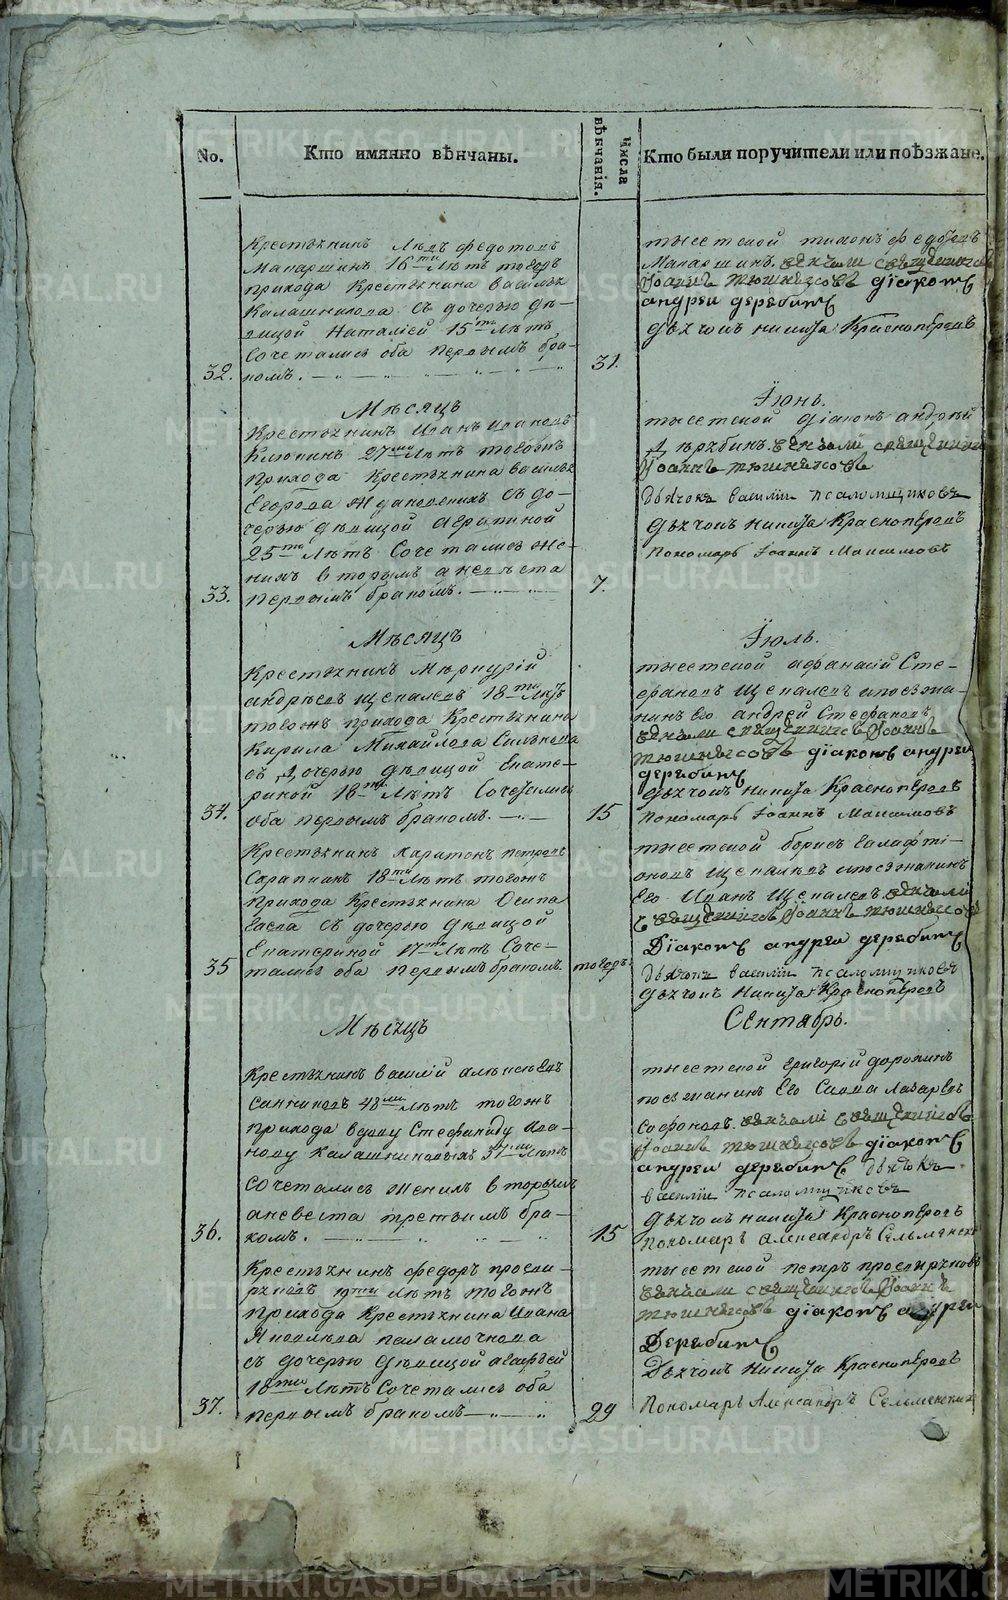 No.
Кто имянно вѣнчаны.
Числа вѣнчанія.
Кто были поручители или поѣзжане.
Крестьянинъ Левъ Федотовъ
Макаршинъ 16ти Лѣтъ тогожъ
прихода Крестьянина Василья
Калашникова съ дочерью дѣ-
вицой Наталіей 15ти Лѣтъ
Сочетались оба первымъ бра-
32. комъ.
31.
тысетской тимонъ федотовъ
Макаршинъ. вѣнчали священникъ
Іоаннъ тюшнясовъ діаконъ
андреи дерябинъ
Дьячокъ никита Красноперовъ
Мѣсяцъ
Іюнь.
Крестьянинъ Иванъ Ивановъ
Клюкинъ 27ми Лѣтъ тогожъ
прихода Крестьянина Василья
Егорова Ждановскихъ съ до-
черью дѣвицой Аграпиной
25ти Лѣтъ Сочетались же-
нихъ вторымъ а невѣста
33. первымъ бракомъ.
7.
тысетской діаконъ андрей
Дерябинъ вѣнчали священникъ
Іоаннъ тюшнясовъ
дьячокъ василіи псаломщиковъ
Дьячокъ никита Красноперовъ
Пономарь Іоаннъ Максимовъ
Мѣсяцъ
Іюль.
Крестьянинъ Меркурій
андрѣевъ Щепалевъ 18ти Лѣтъ
тогожъ прихода Крестьянина
Кирила Михайлова
съ дочерью дѣвицой Екате-
риной 18ти Лѣтъ Сочетались
34. оба первымъ бракомъ.
15
тысетской афанасій Сте-
фановъ Щепалевъ ипоезжа-
нинъ Его андрей Стефановъ
вѣнчали священникъ Іоаннъ
тюшнясовъ діаконъ андреи
дерябинъ
Дьячокъ никита Красноперовъ
Пономарь Іоаннъ Максимовъ
Крестьянинъ Харитонъ петровъ
Сарапкинъ 18ти Лѣтъ тогожъ
прихода Крестьянина Осипа
съ дочерью дѣвицой
Екатериной 17ти Лѣтъ Соче-
35 тались оба первымъ бракомъ.
тогожъ
тысетской борисъ
Щепалевъ ипоезжанинъ
Его Иванъ Щепалевъ вѣнчали
священникъ Іоаннъ тюшнясовъ
Діаконъ андреи дерябинъ
дьячокъ василіи псаломщиковъ
Дьячокъ Никита Красноперовъ
Мѣсяцъ
Сентябрь.
Крестьянинъ василій алексѣевъ
Санниковъ 48ми Лѣтъ тогожъ
прихода вдову Стефаниду Ива-
нову Калашниковыхъ 31 Лѣтъ
Сочетались женихъ вторымъ
аневеста третьимъ бра-
36. комъ.
15
тысетской Григорій дорохинъ
поезжанинъ Его Савва Лазаревъ
Софоновъ. вѣнчали священникъ
Іоаннъ тюшнясовъ діаконъ
андреи дерябинъ дьячокъ
василіи псаломщиковъ
Дьячокъ никита Красноперовъ
Пономарь Александръ Сельменскій
Крестьянинъ федоръ просви-
ряковъ 19ти Лѣтъ тогожъ
прихода Крестьянина Ивана
Яковлева паламочнова
съ дочерью дѣвицой
18ти Лѣтъ Сочетались оба
37. первымъ бракомъ
29
тысетской петръ просвиряковъ
вѣнчали священникъ Іоаннъ
тюшнясовъ діаконъ андреи
Дерябинъ
Дьячокъ Никита Красноперовъ
Пономарь Александръ Сельменскій
METRIKI.GASO-URAL.RU